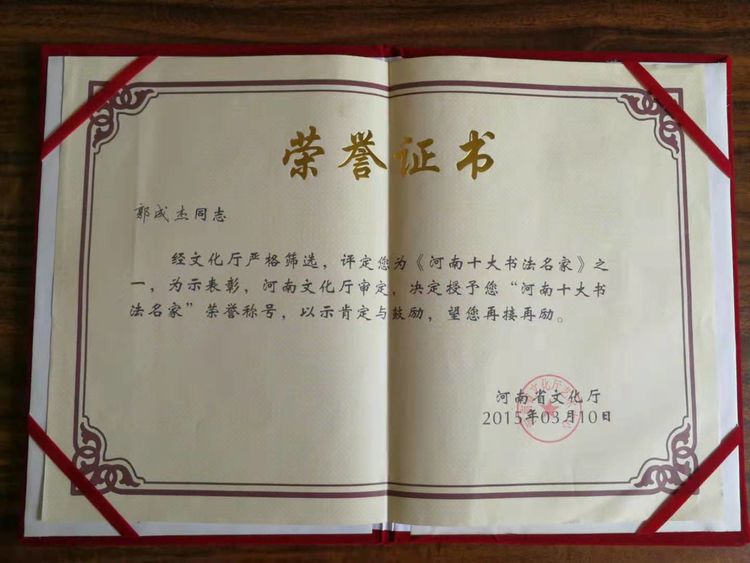 荣誉证书
郭成杰同志
经文化厅严格筛选，评定您为《河南十大书法名家》之
一，为示表彰，河南文化厅审定，决定授予您“河南十大书
法名家”荣誉称号，以示肯定与鼓励，望您再接再励。
河南省文化厅
2015年03月10日